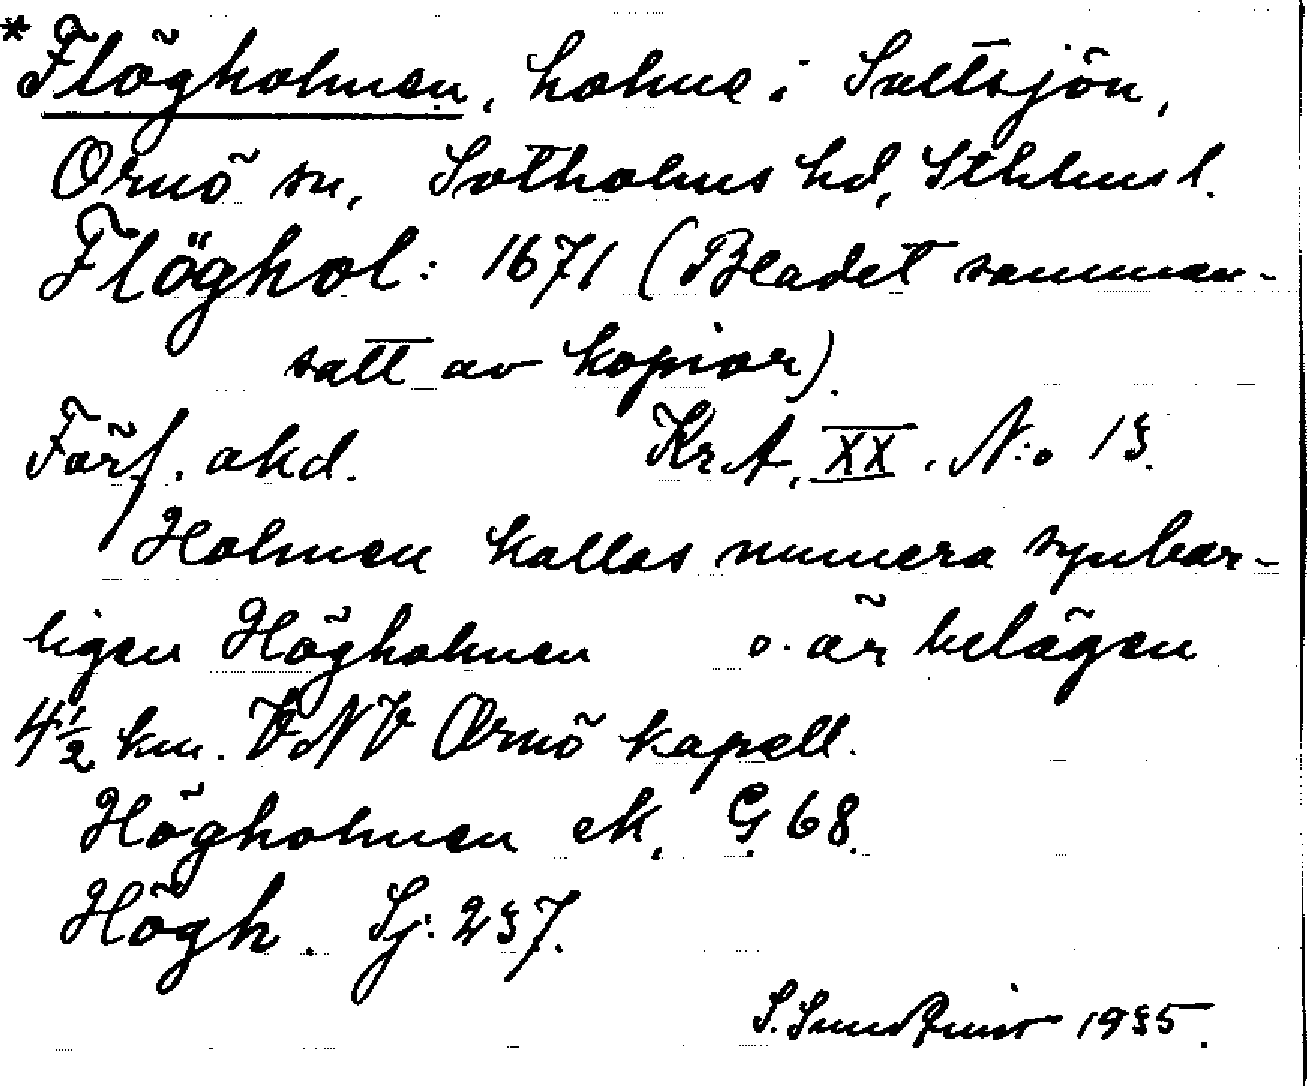 *Flögholmen, holme i Saltsjön,
Ornö sn, Sotholms hd, Sthlms l.
Flöghol: 1671 (Bladet samman-
satt av kopior).
Förf. akd. Kr.A. XX. N:o 13.
Holmen kallas numera synbar-
ligen Högholmen o. är belägen
4½ km. VNV Ornö kapell.
Högholmen ek. G 68.
Högh. Sj: 237.
S. Sundqvist 1935.